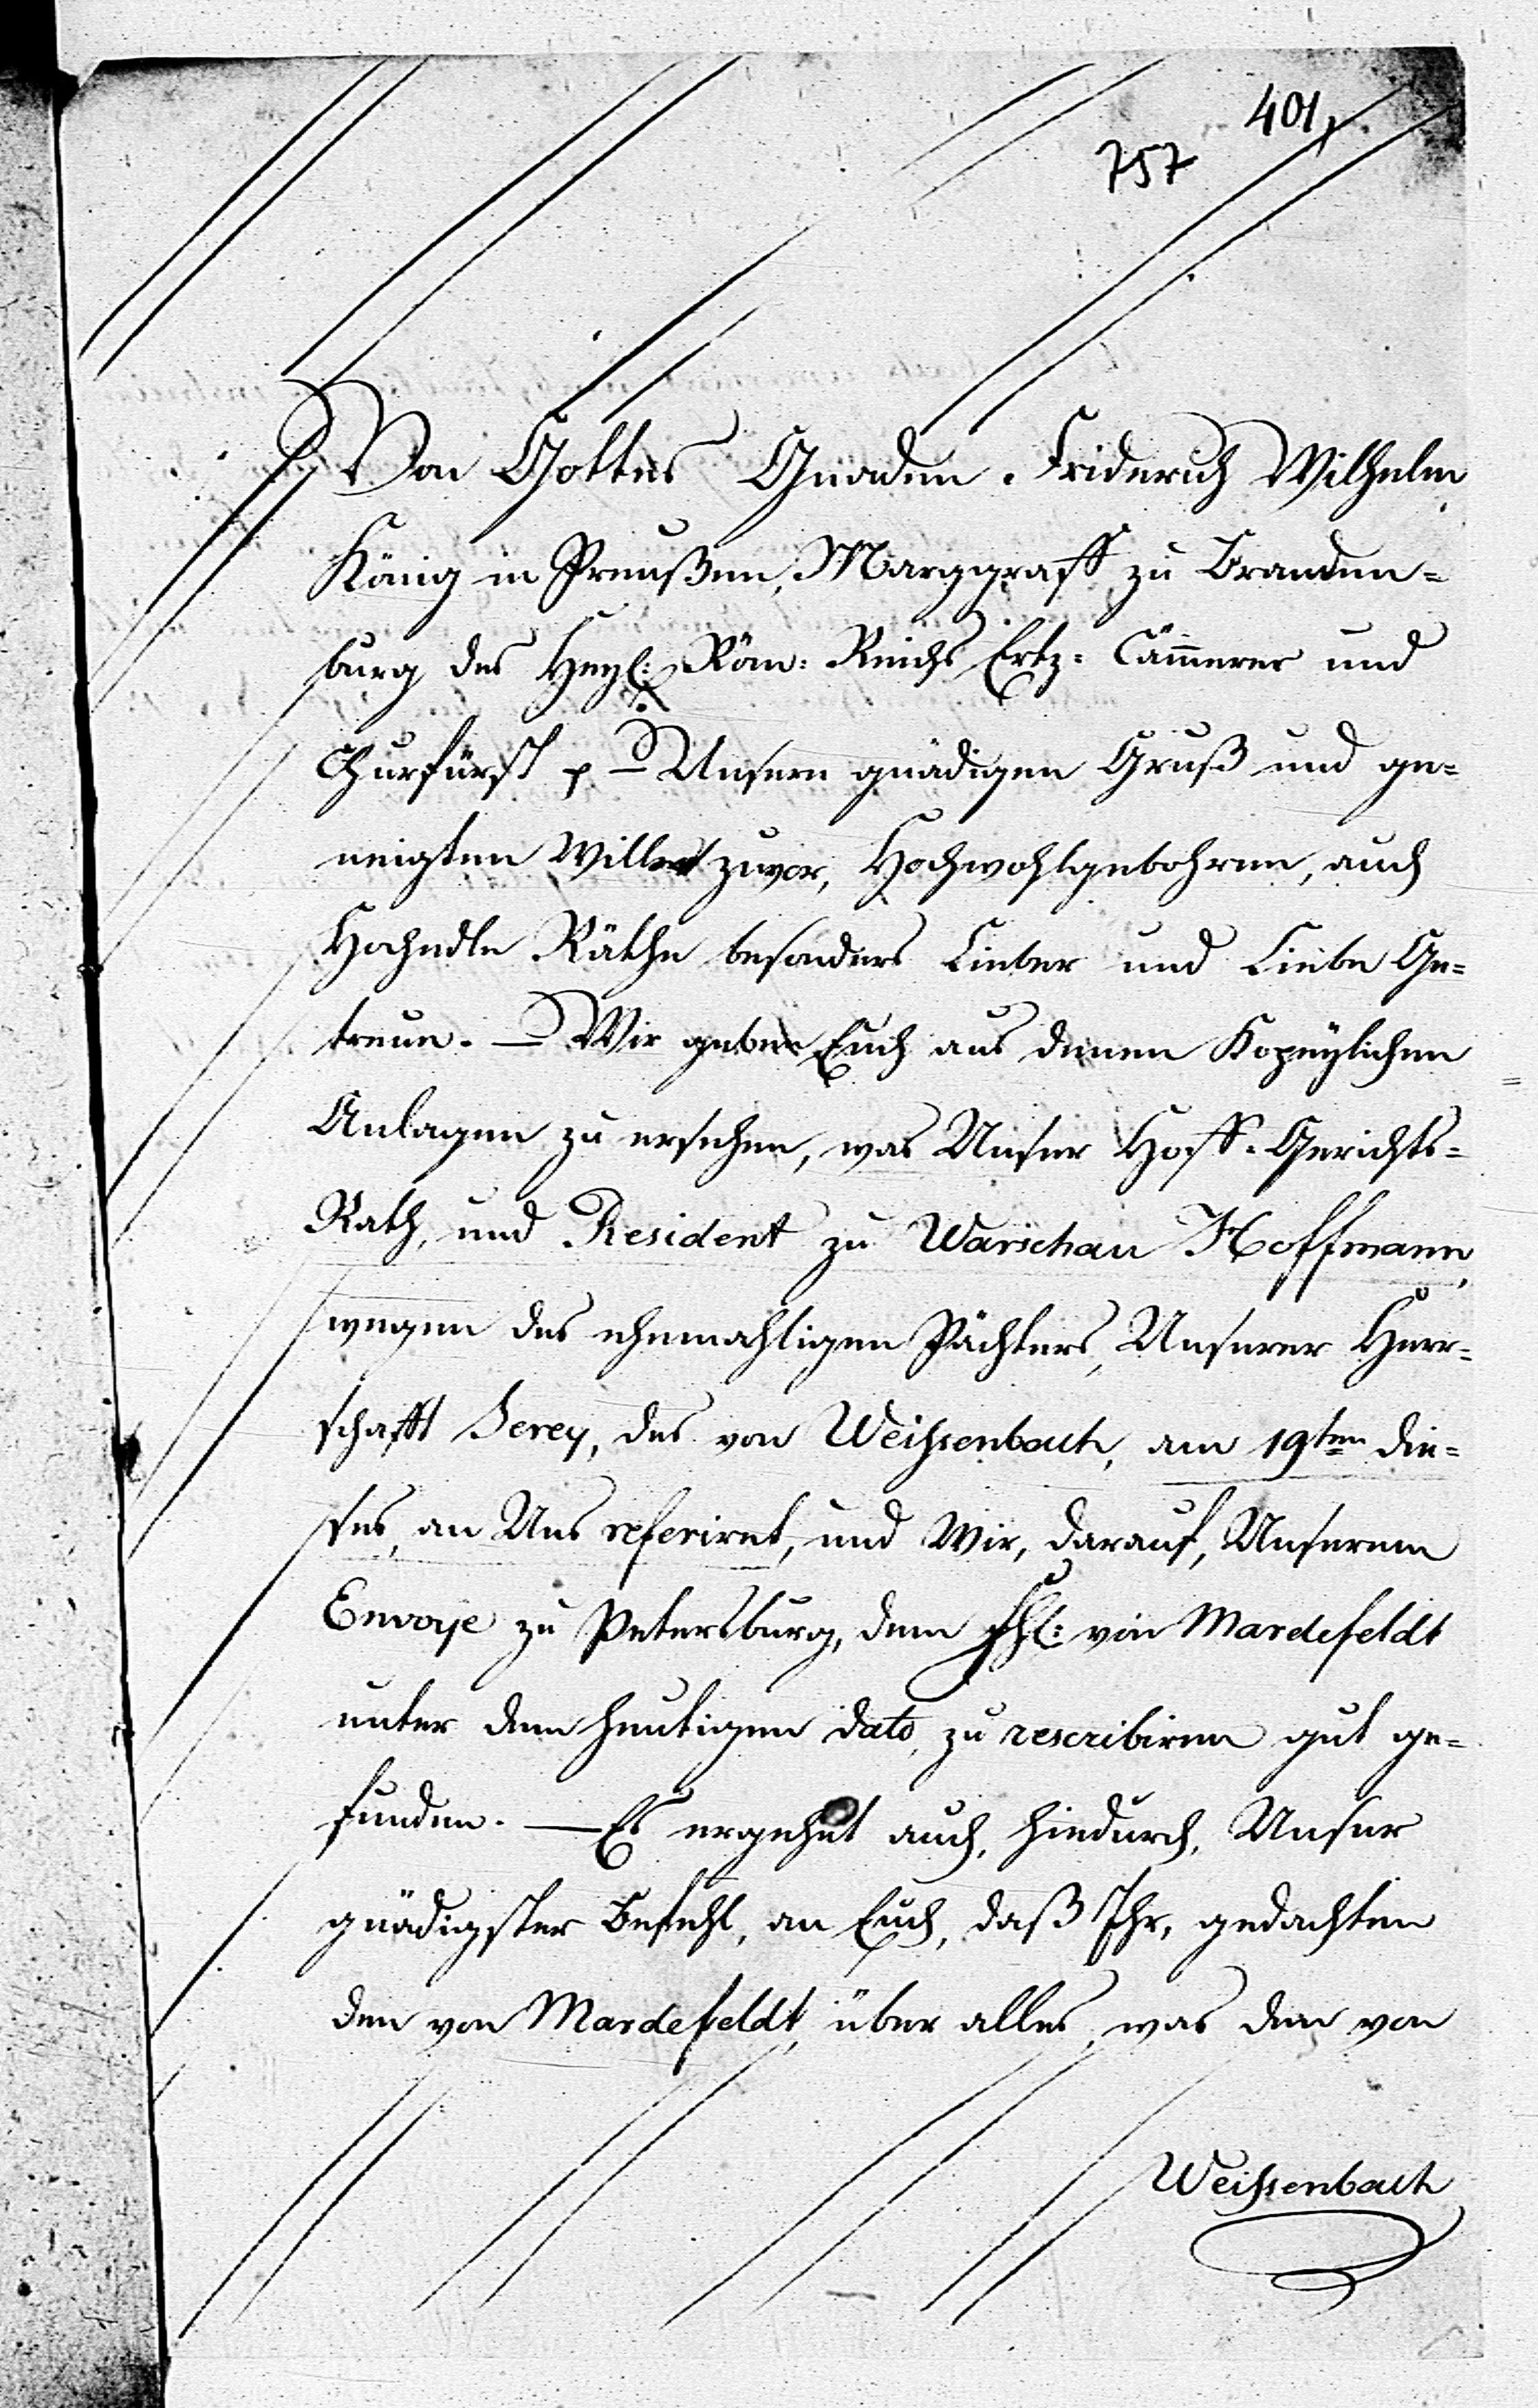 401
757
Von Gottes Gnaden Friderich Wilhelm,
König in Preußen, Marggraff zu Branden=
burg des Heyl: Röm: Reichs Ertz= Cämmerer und
Churfürst p — Unsern gnädigen Gruß und ge=
neigten Willen zuvor, Hochwohlgebohrne, auch
Hochedle Räthe besonders Lieber und Liebe Ge=
treue. — Wir geben Euch aus denen Kopeylichen
Anlagen zu ersehen, was Unser Hoff= Gerichts=
Rath, und Resident zu Warschau Hoffmann,
wegen des ehemahligen Pächters, Unserer Herr=
schafft Serey, des von Weissenbach, am 19ten die=
ses, an Uns referiret, und Wir, darauf, Unserem
Envoye zu Petersburg, dem Fhl: von Mardefeldt
unter dem heutigen dato, zu rescribiren gut ge=
funden. — Es ergehet auch, hiedurch, Unser
gnädigster Befehl, an Euch, daß Ihr, gedachten
den von Mardefeldt, über alles, was dem von
Weissenbach